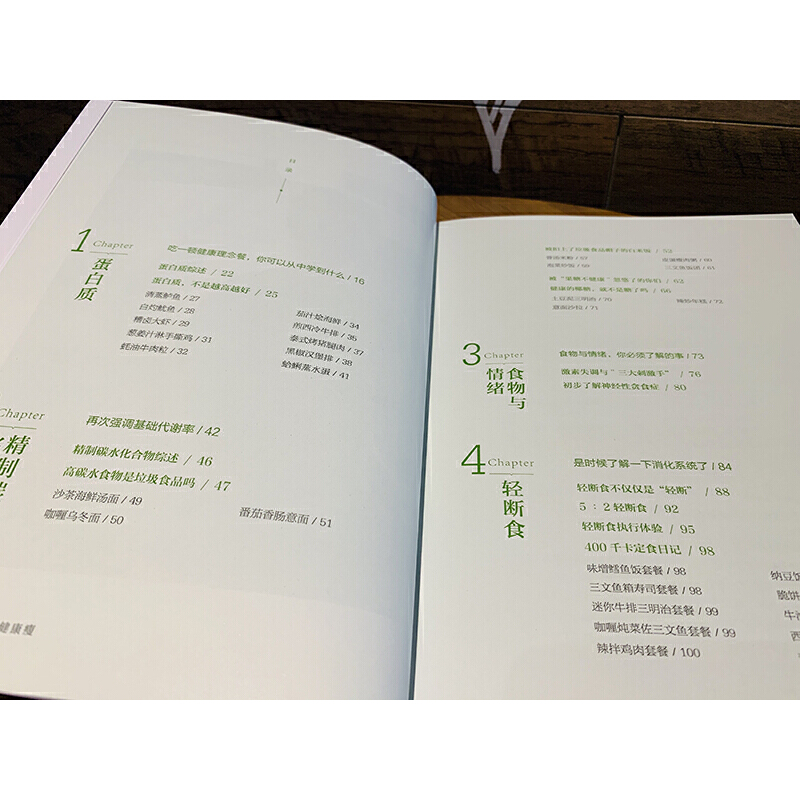 目录
1 Chapter
蛋白质
吃一顿健康理念餐，你可以从中学到什么 / 16
蛋白质综述 / 22
蛋白质，不是越高越好 / 25
清蒸鲈鱼 / 27
白灼鱿鱼 / 28
糟卤大虾 / 29
葱姜汁淋手撕鸡 / 31
蚝油牛肉粒 / 32
茄汁烩海鲜 / 34
煎西冷牛排 / 35
泰式烤猪腿肉 / 37
黑椒汉堡排 / 38
蛤蜊蒸水蛋 / 41
Chapter
精制
再次强调基础代谢率 / 42
精制碳水化合物综述 / 46
高碳水食物是垃圾食品吗 / 47
沙茶海鲜汤面 / 49
咖喱乌冬面 / 50
番茄香肠意面 / 51
健康瘦
/ 52
/ 57
/ 60
/ 60
三文鱼饭团 / 61
/ 62
/ 66
土豆泥三明治 / 70
意面沙拉 / 71
/ 72
3 Chapter
食物与情绪
食物与情绪，你必须了解的事 / 73
激素失调与“三大刺激手” / 76
初步了解神经性贪食症 / 80
4 Chapter
轻断食
是时候了解一下消化系统了 / 84
轻断食不仅仅是“轻断” / 88
5：2轻断食 / 92
轻断食执行体验 / 95
400千卡定食日记 / 98
味增鳕鱼饭套餐 / 98
三文鱼箱寿司套餐 / 98
迷你牛排三明治套餐 / 99
咖喱炖菜佐三文鱼套餐 / 99
辣拌鸡肉套餐 / 100
纳豆饭
脆饼
牛
西